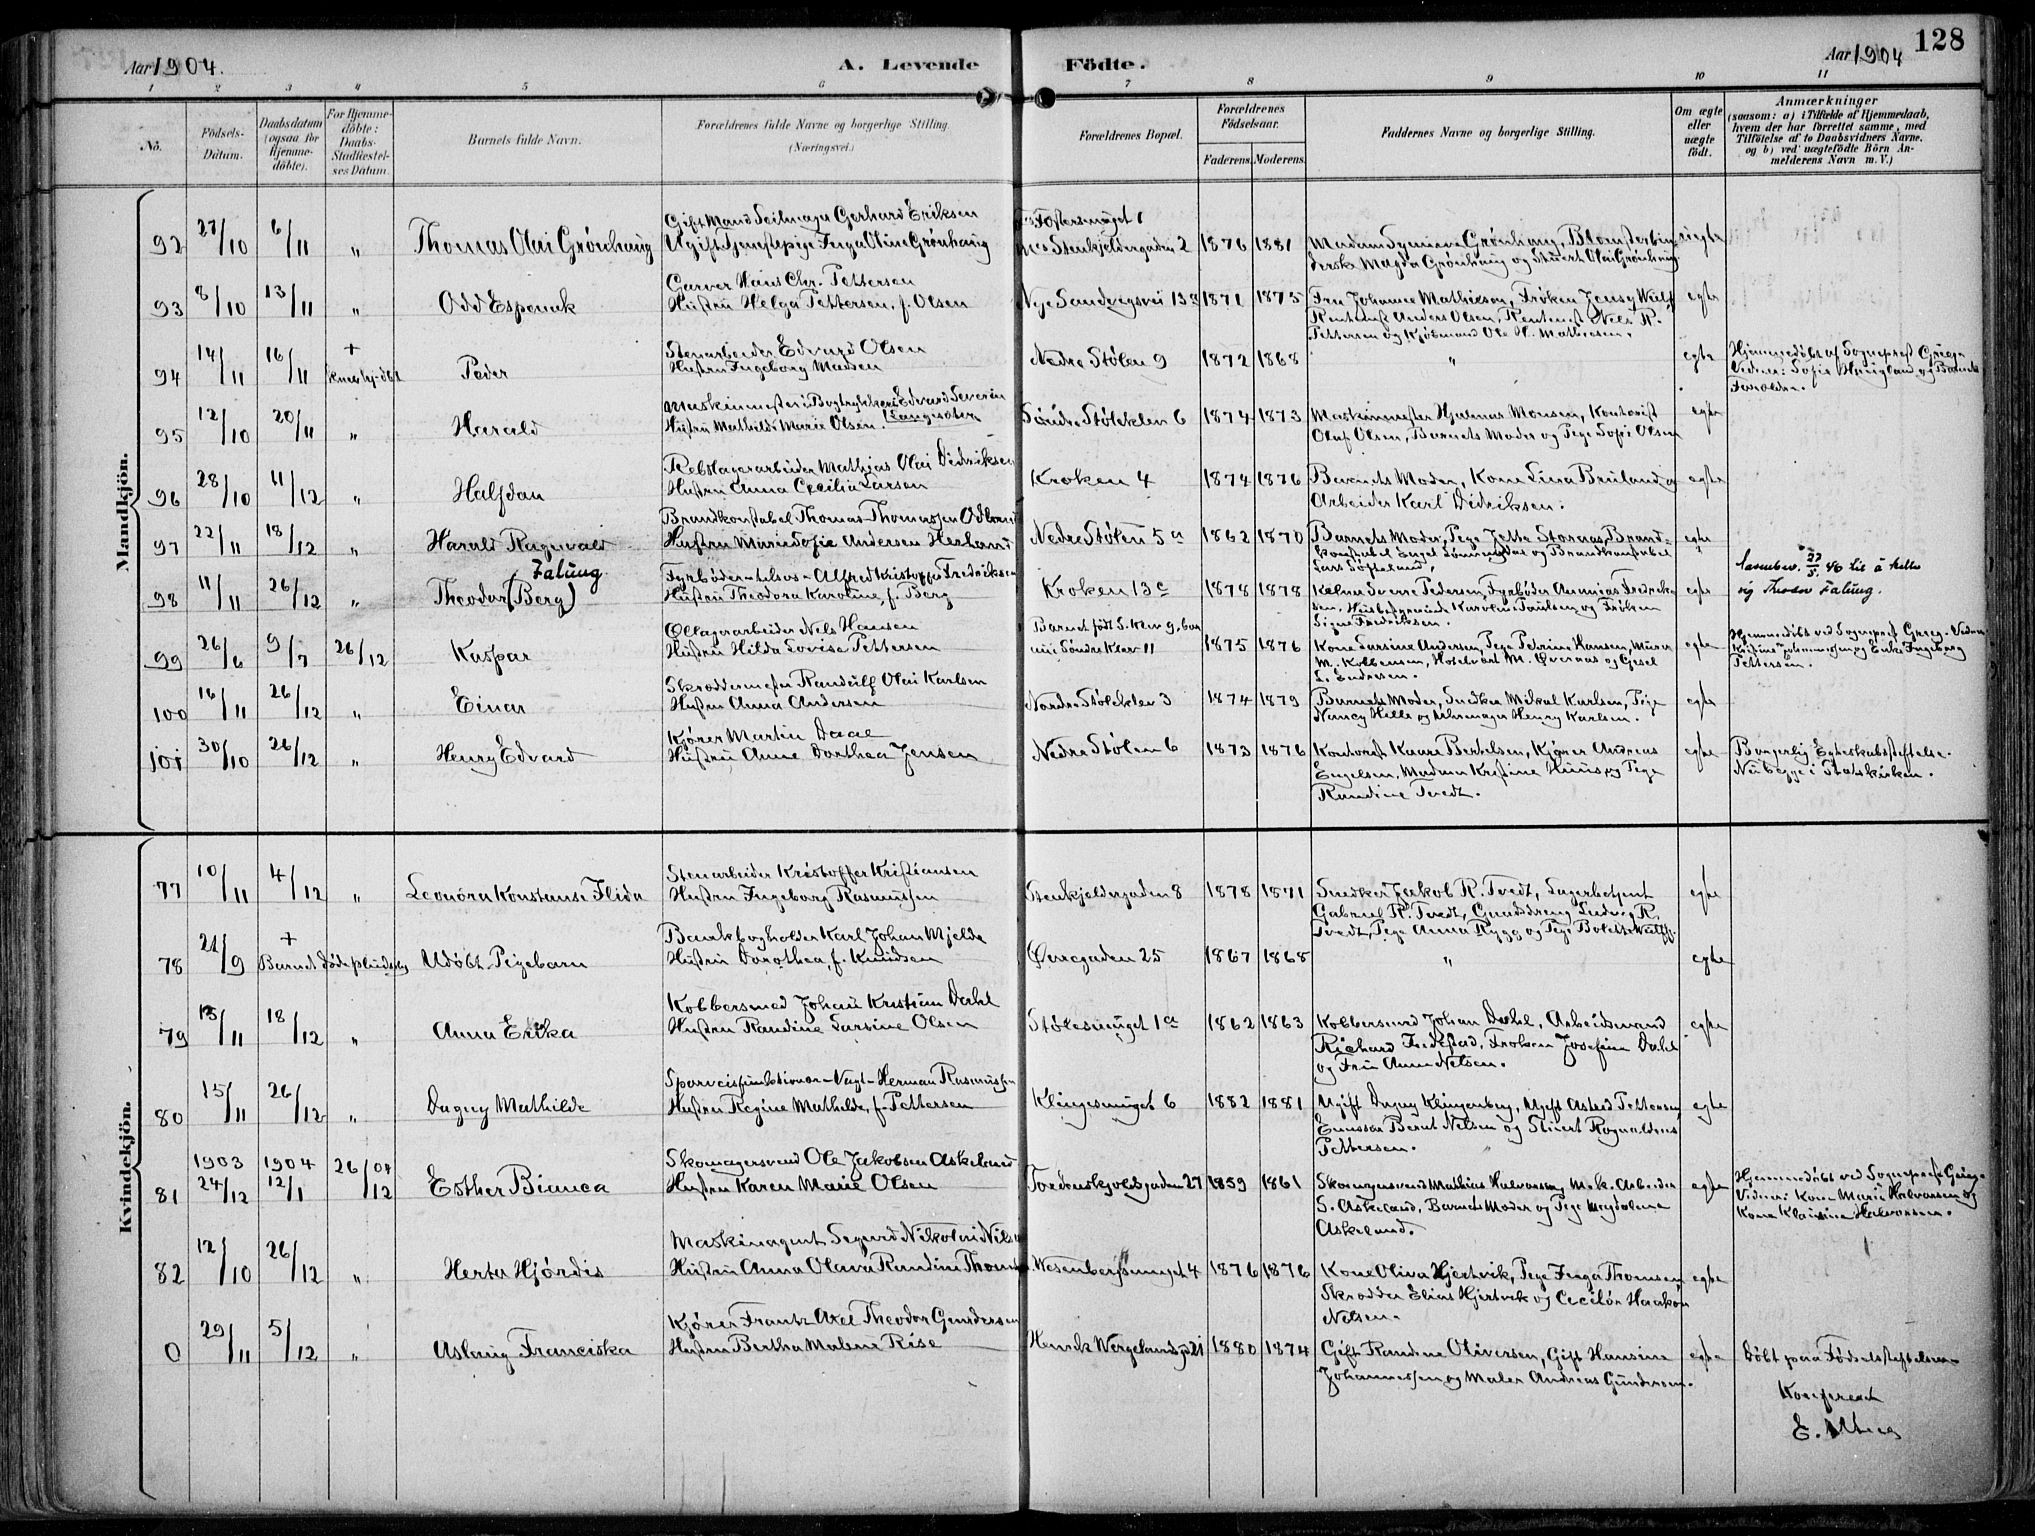 128
Aar 1904.
A. Levende
Födte.
Aar 1904
1 2 3 4 5 6 7 8 9 10 11
No.
Födsels-
Datum.
Daabsdatum
(ogsaa for
Hjemme-
döbte).
For Hjemme-
döbte:
Daabs-
Stadfæstel-
ses Datum.
Barnets fulde Navn.
Forældrenes fulde Navne og borgerlige Stilling.
(Næringsvei.)
Forældrenes Bopæl.
Forældrenes
Födselsaar.
Faderens. Moderens.
Faddernes Navne og borgerlige Stilling.
Om ægte
eller
uægte
födt.
Anmærkninger
(saasom: a) i Tilfælde af Hjemmedaab,
hvem der har forrettet samme, med
Tilföielse af to Daabsvidners Navne.
og b) ved uægtefödte Börn An-
melderens Navn m. V.)
Mandkjön.
92 27/10 6/11 " Thomas Olai Grönhaug
Gift Mand Seilmager Gerhard Eriksen
Ugift Tjenestepige Inga Oline Grönhaug
Stenkjeldergaden 2 1876 1881
Madam Grönhaug,
Magda Grönhaug og Olai Grönhaug
uegte
93 8/10 13/11 "
Garver Hans Chr. Pettersen
Hustru Helga Pettersen, f. Olsen
Nye Sandvigsvei 13a 1871 1875
Fru Johanne Mathiesen, Fröken Jensy Wulff
Anders Olsen, Nels R.
Pettersen og Kjöbmand Ole H. Mathiesen.
egte
94 14/11 16/11 + Peder
Stenarbeider Edvard Olsen
Hustru Ingeborg Madsen
Nedre Stölen 9 1872 1868 " egte
Hjemmedöbt af Sogneprest Grieg.
Vidner: Sofie og Barnets
Forældre.
95 12/10 20/11 " Harald
Maskinmester i Bogtrykkeri Edvard Severin
Langesæter
Hustru Mathilde Marie Olsen.
Söndre Stöleklev 6 1874 1873
Maskinmester Hjalmar Monsen, Kontorist
Olaf Olsen, Barnets Moder og Pige Sofie Olsen
egte
96 28/10 11/12 " Halfdan
Rebslagerarbeider Mathias Olai Didriksen
Hustru Anna Cecilia Larsen
Kroken 4 1874 1876
Barnets Moder, Kone Lina Bruland og
Arbeider Karl Didriksen.
egte
97 22/11 18/12 " Harald Ragnvald
Brandkonstabel Thomas Thomassen
Hustru Marie Sofie Andersen
Nedre Stölen 5a 1862 1870
Barnets Moder, Pige Jetta Storaas, Brand-
konstabel Engel og Brandkonstabel
Lars
egte
98 11/11 26/12 " Theodor (Berg)
Falung
Fyrböder - tilsös - Alfred Kristoffer Fredriksen
Hustru Theodora Karoline, f. Berg
Kroken 13c 1878 1878
Kelner Sverre Pedersen, Fyrböder Ananias Fredrik-
sen, Karoline Paulsen og Fröken
Signe Fredriksen.
egte
46 til å kalle
sig Theodor Falung.
99 26/6 9/7 26/12 Kaspar
Ölagerarbeider Nels Hansen
Hustru Hilda Lovise Pettersen
Barnet födt S. Klev 9, bor
nu i Söndre Klev 11 1875 1876
Kone Larsine Andersen, Pige Petrine Hansen, Murer
M. Kolbensen, M. Övernes og Gesel
L. Endresen.
egte
Hjemmedöbt ved Sogneprest Grieg. Vidner
Kristine Johannesen og Enke Ingeborg
Pettersen.
100 16/11 26/12 " Einar
Skreddermester Randulf Olai Karlsen
Hustru Anna Andersen
Nordre Stölekлev 3 1874 1879
Barnets Moder, Snedker Mikal Karlsen, Pige
Nancy Helle og Urmager Henry Karlsen.
egte
101 30/10 26/12 " Henry Edvard
Kjörer Martin Daae
Hustru Anne Dorthea Jensen
Nedre Stölen 6 1873 1876
Kontorist Kaare Bertelsen, Kjörer Andreas
Engelsen, Madam Kristine Huus og Pige
Randine Tvedt.
egte
Borgerlig Egteskabsstiftelse.
Nei begge i Statskirken.
Kvindekjön.
77 10/11 4/12 " Leonóra Konstanse Flida
Stenarbeider Kristoffer Kristiansen
Hustru Ingeborg Rasmussen
Stenkjeldergaden 8 1878 1871
Snedker Jakob R. Tvedt, Lagerbetjent
Gabriel R. Tvedt, Gaardsdreng Ludvig R.
Tvedt, Pige Anna Rygg og Pige Bolette Wulff.
egte
78 21/9 + Barnet döde pludselig Udöbt Pigebarn
Bankbogholder Karl Johan Mjelde
Hustru Dorothea, f. Knudsen
Övregaden 25 1867 1868 " egte
79 13/11 18/12 " Anna Erika
Kobbersmed Johan Kristian Dahl
Hustru Randine Larsine Olsen
Stölesmuget 1a 1862 1863
Kobbersmed Johan Dahl, Arbeidsmand
Richard Fredstad, Fröken Josefine Dahl
og Fru Anna Nelsen.
egte
80 15/11 26/12 " Dagny Mathilde
Sporveisfunktionær - Vagt - Herman Rasmussen
Hustru Regine Mathilde, f. Pettersen
Klingesmuget 6 1882 1881
Ugift Dagny Klingenberg, Ugift Astrid Pettersen,
Bernt Nelsen og Stuert Ragnvald
Pettersen.
egte
81 1903 24/12 1904 12/1 26/12 04 Esther Bianca
Skomagersvend Ole Jakobsen Askeland
Hustru Karen Marie Olsen
Tordenskjoldsgaden 27 1859 1861
Skomagersvend Mathias Halvorsen, Mek. Arbeider
S. Askeland, Barnets Moder og Pige Magdalene
Askeland.
egte
Hjemmedöbt ved Sogneprest Grieg.
Vidner: Kone Marie Halvorsen og
Kone Klausine Halvorsen.
82 12/10 26/12 " Herta Hjördis
Maskinagent Sigurd Nikolai Nilsen
Hustru Anna Olava Randine Thomsen
Wesenbergsmuget 4 1876 1876
Kone Oliva Hjertvik, Pige Inga Thomsen,
Skredder Elias Hjertvik og Haakon
Nelsen.
egte
0 29/11 5/12 " Aslaug Franciska
Kjörer Frantz Axel Theodor Gundersen
Hustru Bertha Malene Rise
Henrik Wergelandsg. 21 1880 1874
Gift Randine Oliversen, Gift Hansine
Johannessen og Maler Andreas Gundersen.
egte
Döbt paa Födselsstiftelsen.
Konfereret